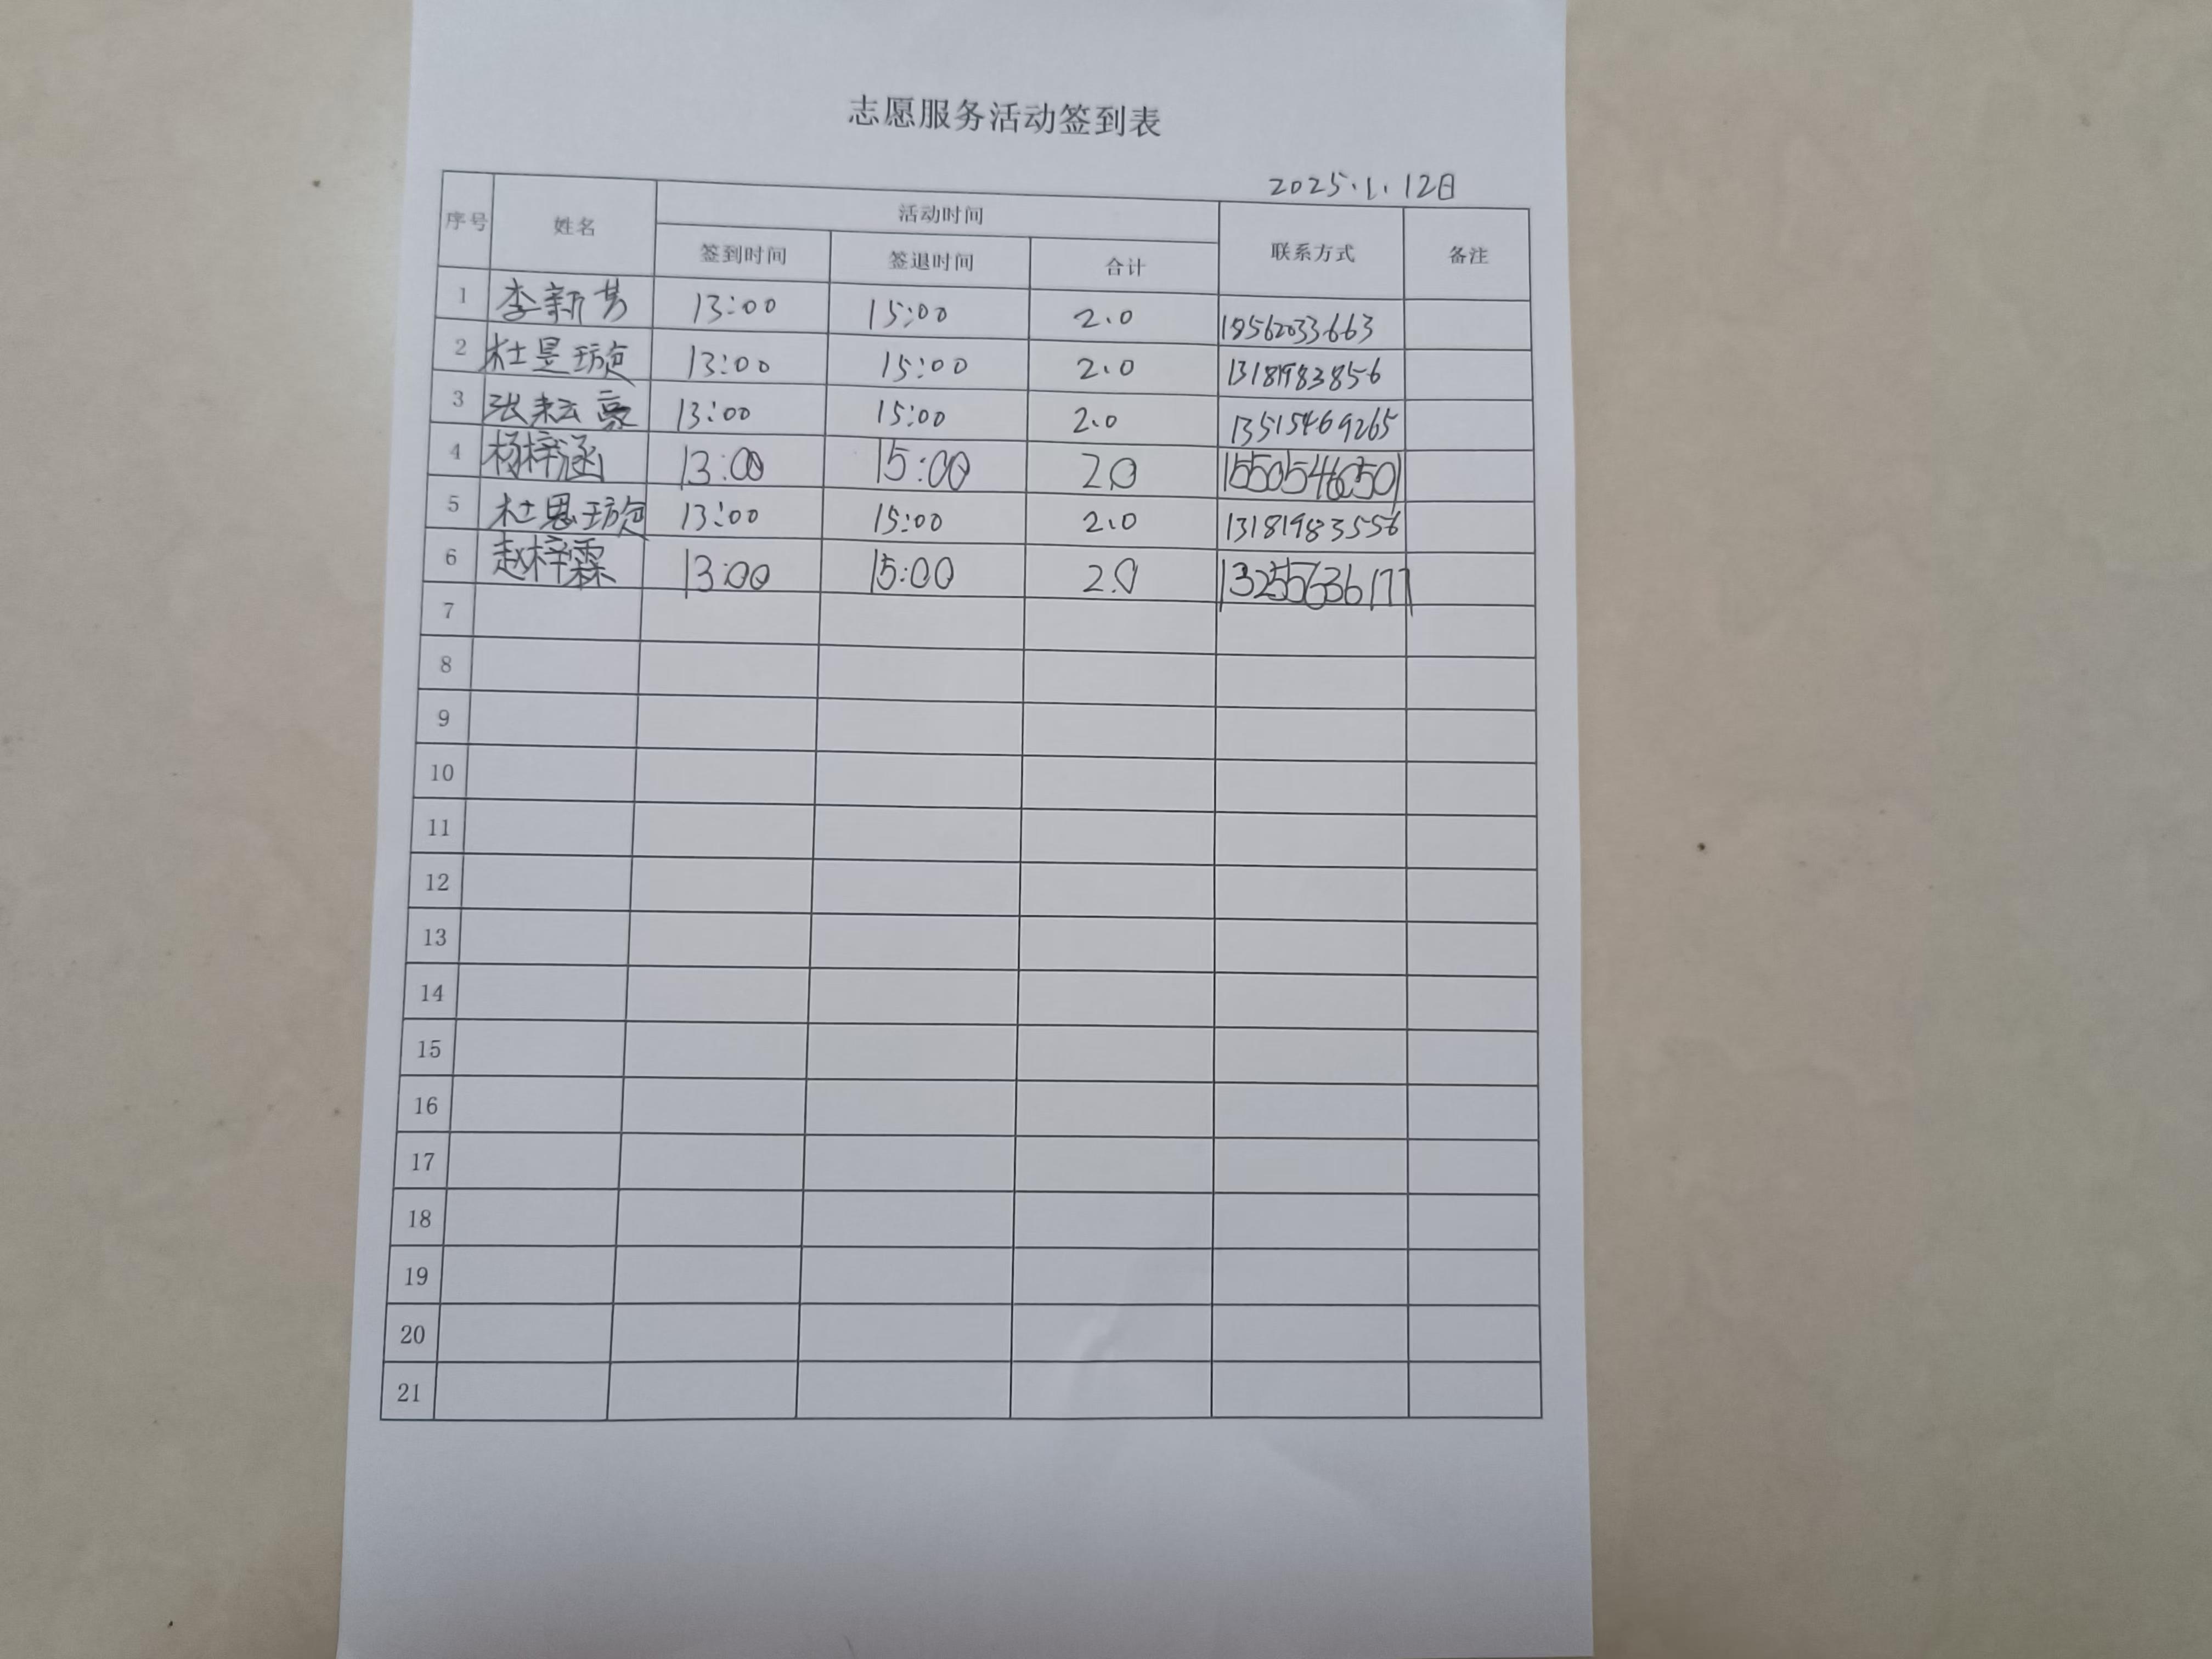 志愿服务活动签到表
2025.1.12日
序号 姓名 活动时间 联系方式 备注
签到时间 签退时间 合计
1 李新芳 13:00 15:00 2.0
2 杜昱璇 13:00 15:00 2.0
3 张耘豪 13:00 15:00 2.0 13515469265
4 杨梓涵 13:00 15:00 2.0 15505460501
5 杜恩璇 13:00 15:00 2.0 13181983556
6 赵梓霖 13:00 15:00 2.0 13255636177
7
8
9
10
11
12
13
14
15
16
17
18
19
20
21